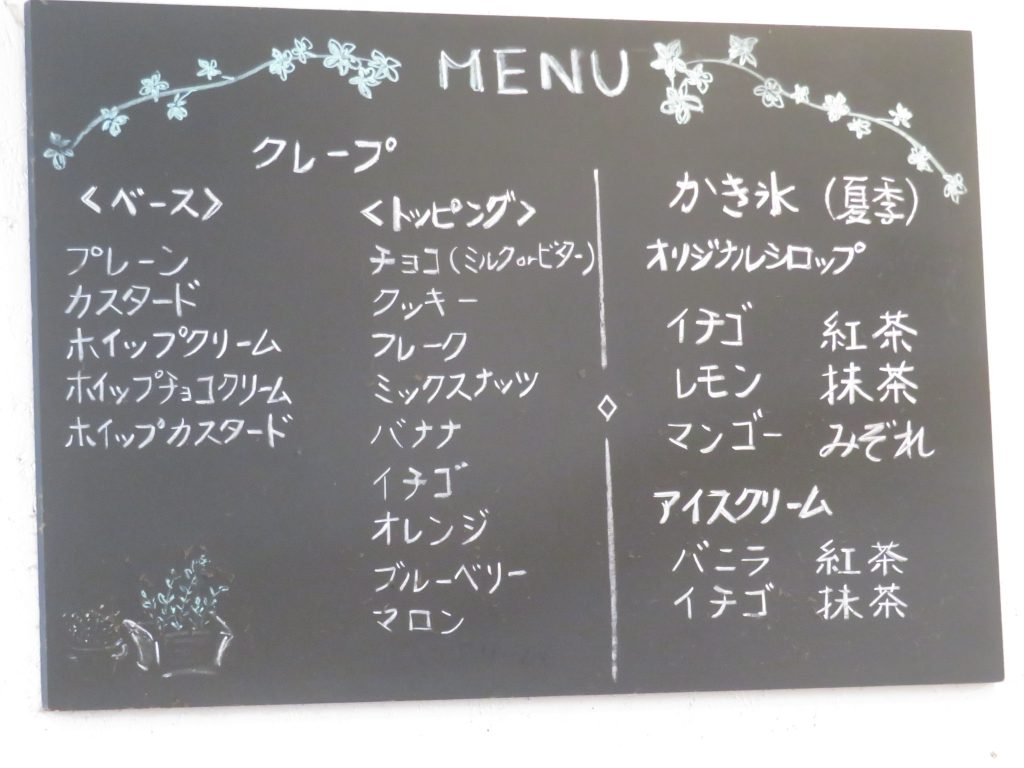 MENU
クレープ
<ベース>
プレーン
カスタード
ホイップクリーム
ホイップチョコクリーム
ホイップカスタード
<トッピング>
チョコ(ミルクorビター)
クッキー
フレーク
ミックスナッツ
バナナ
イチゴ
オレンジ
ブルーベリー
マロン
かき氷 (夏季)
オリジナルシロップ
イチゴ 紅茶
レモン 抹茶
マンゴー みぞれ
アイスクリーム
バニラ 紅茶
イチゴ 抹茶